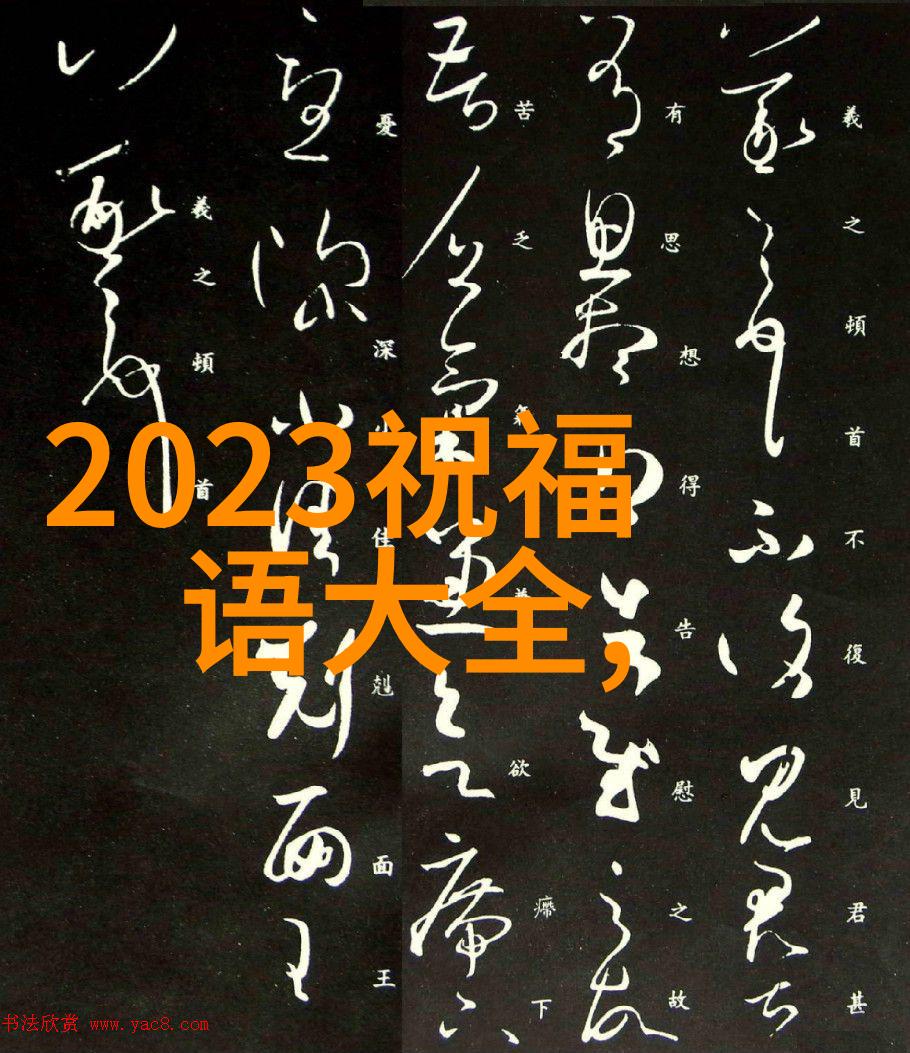 2023祝福
语大全,
羲之頓首不復見君甚
有思想得告慰之故
苦乏氣欲下
憂深小佳剋面王
羲之頓首
书法欣赏 www.yac8.com